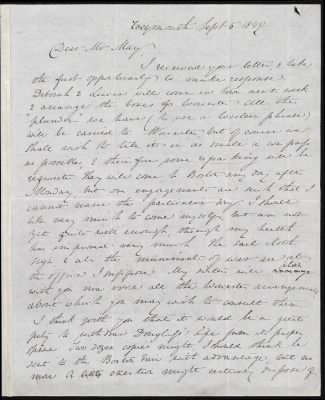 Weymouth Sept 5 1849
Dear Mr May
I received your letter, & take
the first opportunity to make response.
Deborah & Lucia will come in town next week
& arrange the boxes for Worcester. All the
"plunder" we have (to use a Western phrase)
will be carried to Worcester, but of course we
shall wish to take it in as small a compass
as possible, & therefore some repacking will be
requisite. They will come to Boston any day after
Monday, but our engagements are such that I
cannot name the particular day. I should
like very much to come myself, but am not
yet quite well enough, though my health
has improved very much. The sail cloth
sign & all the muniments of war are at
the office I suppose. My sisters will
plan
with you over all the Worcester arrangements
about which you may wish to consult them.
I think with you that it would be a great
pity to withdraw Douglass's Life from its proper
place. Two dozen copies might I should think be
sent to the Boston Fair with advantage, but no
more. A little exertion might certainly dispose of